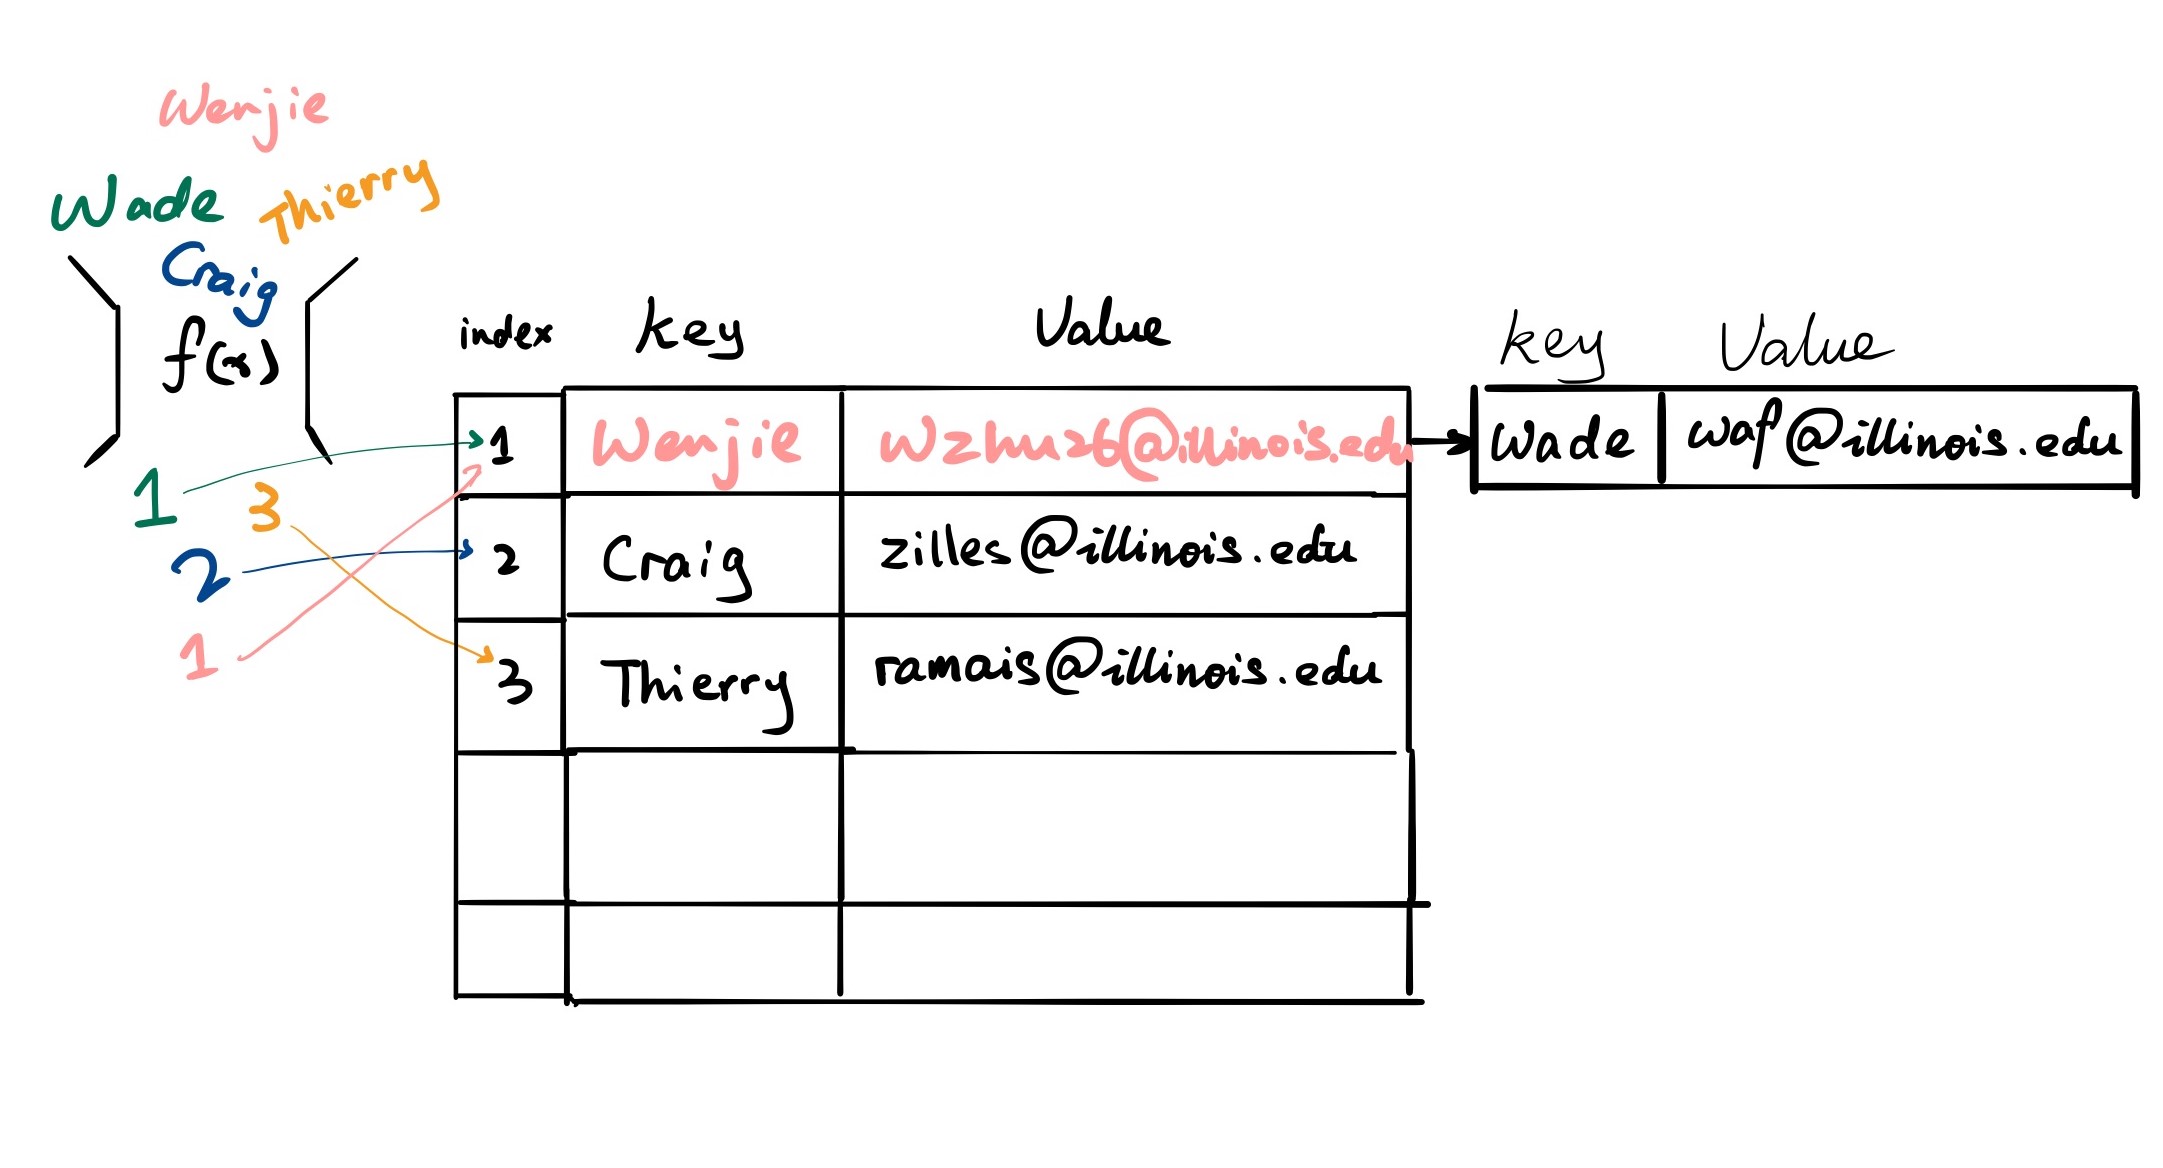 Wenjie
Wade Thierry
Craig
f(x)
1 3
2
1
index key Value
1 Wenjie wzhu26@illinois.edu
2 Craig zilles@illinois.edu
3 Thierry ramais@illinois.edu
key Value
Wade waf@illinois.edu